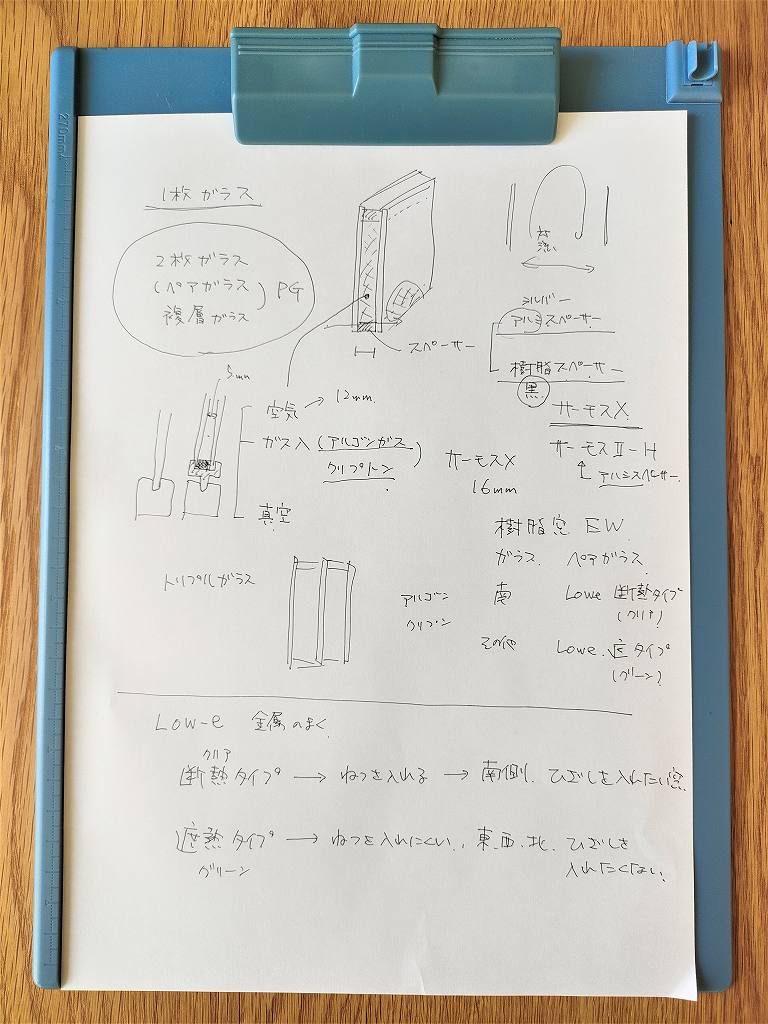 270mm
1枚ガラス
2枚ガラス
(ペアガラス) PG
複層ガラス
スペーサー
対流
シルバー
アルミスペーサー
樹脂スペーサー
黒
5mm
空気 → 12mm
ガス入 (アルゴンガス)
クリプトン
真空
サーモスX
16mm
サーモスX
サーモスII-H
アルミスペーサー
樹脂窓 EW
ガラス ペアガラス
南 Lowe 断熱タイプ
(クリア)
その他 Lowe. 遮タイプ
(グリーン)
トリプルガラス
アルゴン
クリプトン
Low-e 金属のまく
クリア
断熱タイプ → ねつを入れる → 南側. ひざしを入れたい窓
遮熱タイプ → ねつを入れにくい. 東.西.北. ひざしを
入れたくない.
グリーン